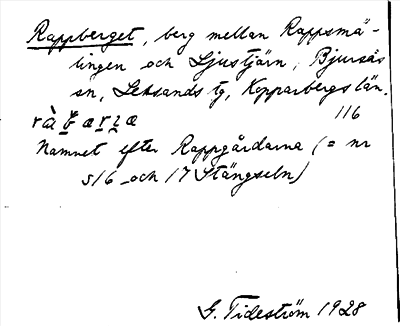 Rappberget, berg mellan Rappsmä-
lingen och Ljustjärn, Bjursås
sn, Leksands tg, Kopparbergs län.
116
Namnet efter Rappgårdarna (= nr
s16 och 17 Stångseln)
G. Tideström 1928